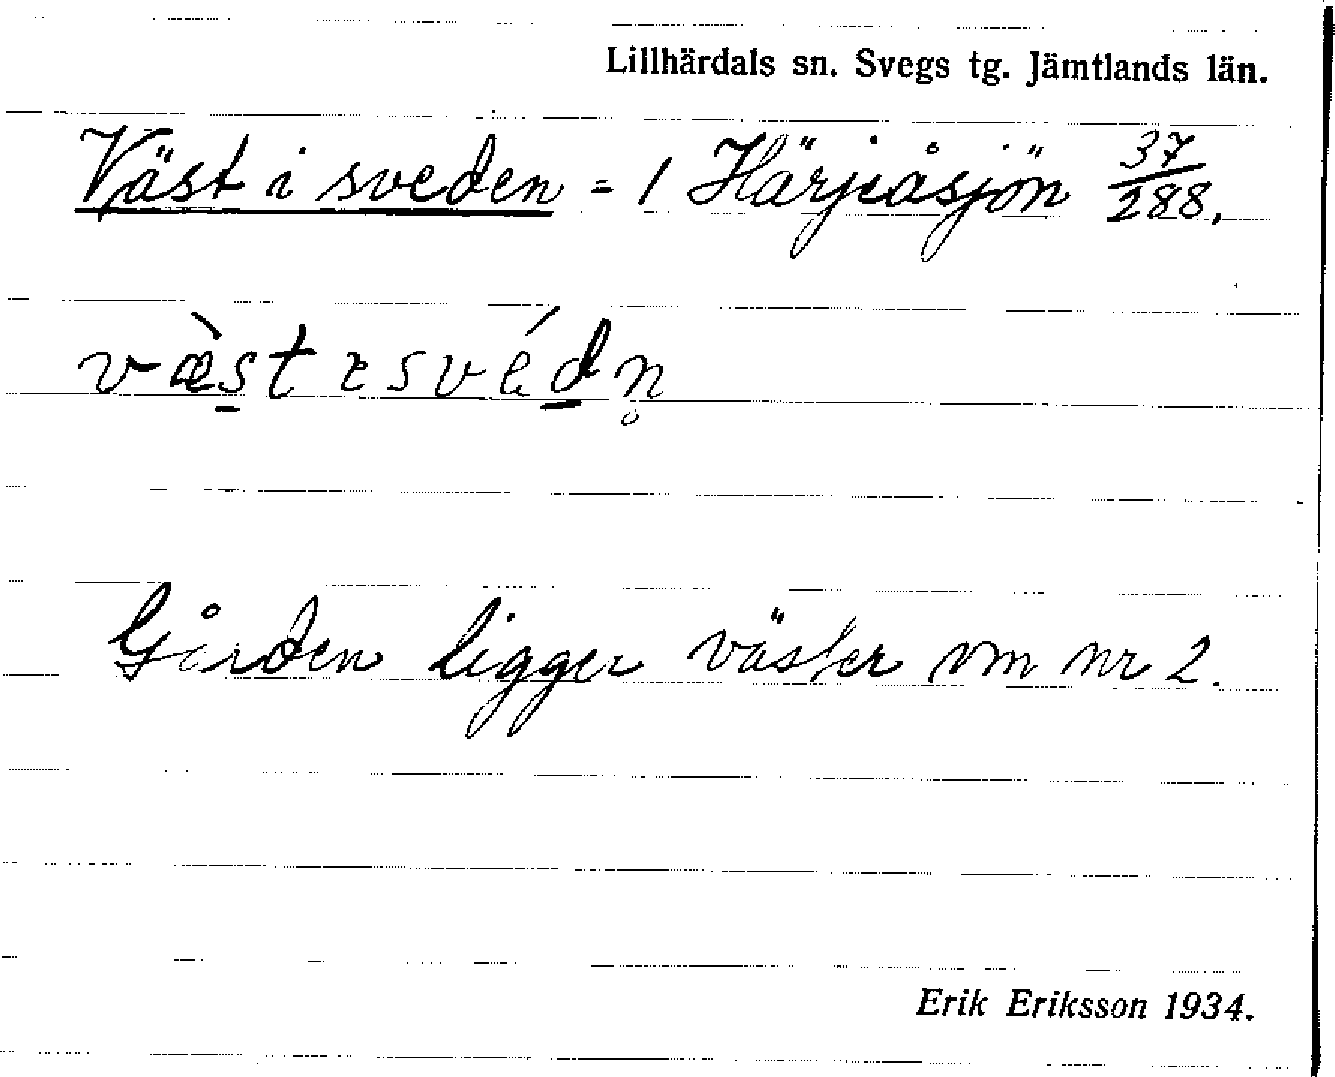 Lillhärdals sn. Svegs tg. Jämtlands län.
Väst i sveden = 1 Härjeåsjön 37/288.
væ̀st ɪ svédn̥
Gården ligger väster om nr 2.
Erik Eriksson 1934.